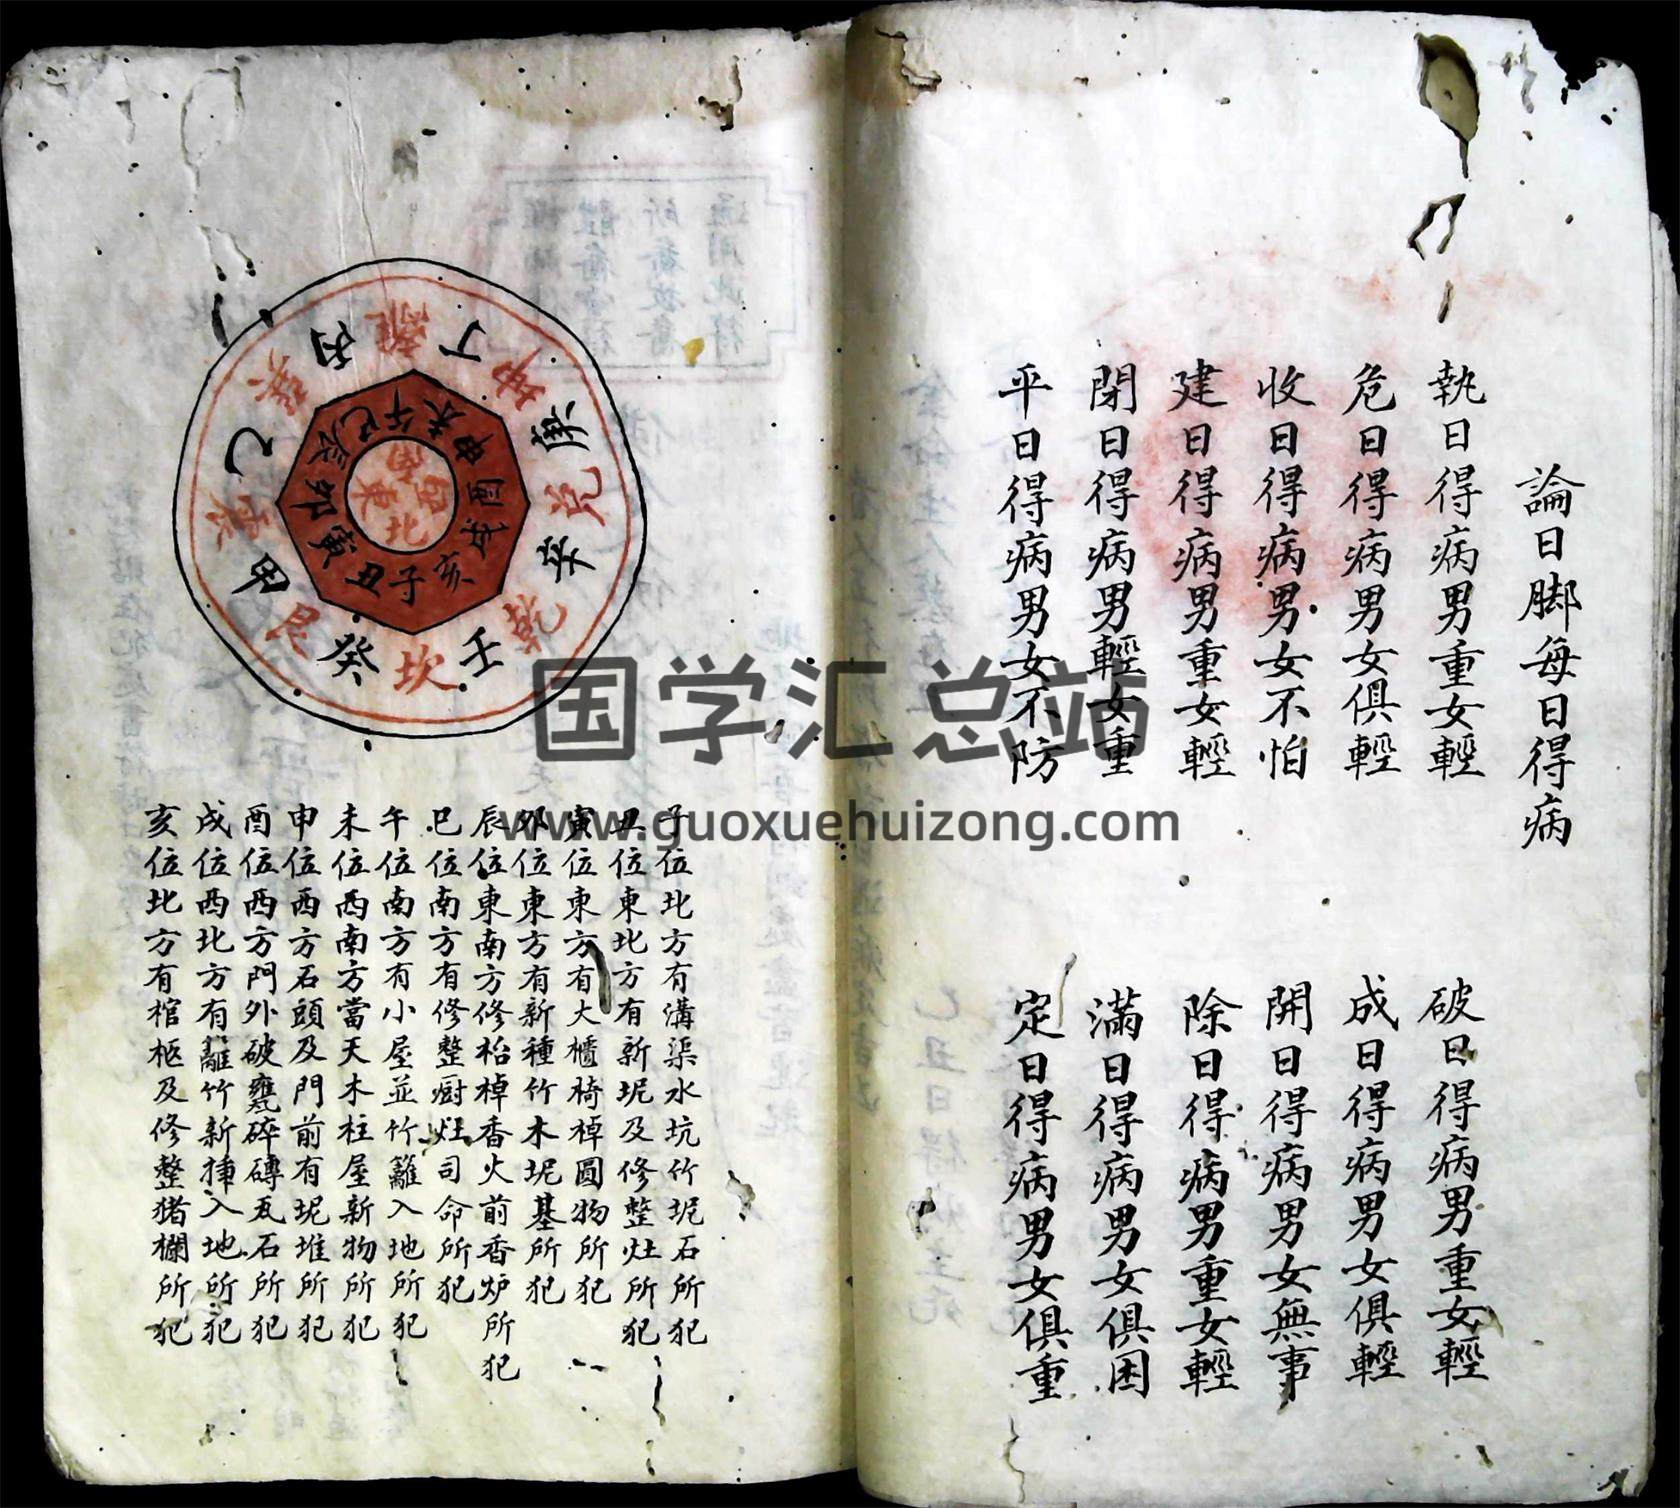 論日脚每日得病
執日得病男重女輕
破日得病男重女輕
危日得病男女俱輕
成日得病男女俱輕
收日得病男女不怕
開日得病男女無事
建日得病男重女輕
除日得病男重女輕
閉日得病男輕女重
滿日得病男女俱困
平日得病男女不防
定日得病男女俱重
離 丁 坤 庚 兑 辛 乾 壬 坎 癸 艮 甲 震 乙 巽 丙
午 未 申 酉 戌 亥 子 丑 寅 卯 辰 巳
南 西 北 東
子位北方有溝渠水坑竹坭石所犯
丑位東北方有新坭及修整灶所犯
寅位東方有大櫃椅棹圓物所犯
卯位東方有新種竹木坭基所犯
辰位東南方修枱棹香火前香炉所犯
巳位南方有修整廚灶司命所犯
午位南方有小屋並竹籬入地所犯
未位西南方當天木柱屋新物所犯
申位西方石頭及門前有坭堆所犯
酉位西方門外破甕碎磚瓦石所犯
戌位西北方有籬竹新揷入地所犯
亥位北方有棺柩及修整猪欄所犯
国学汇总站
www.guoxuehuizong.com